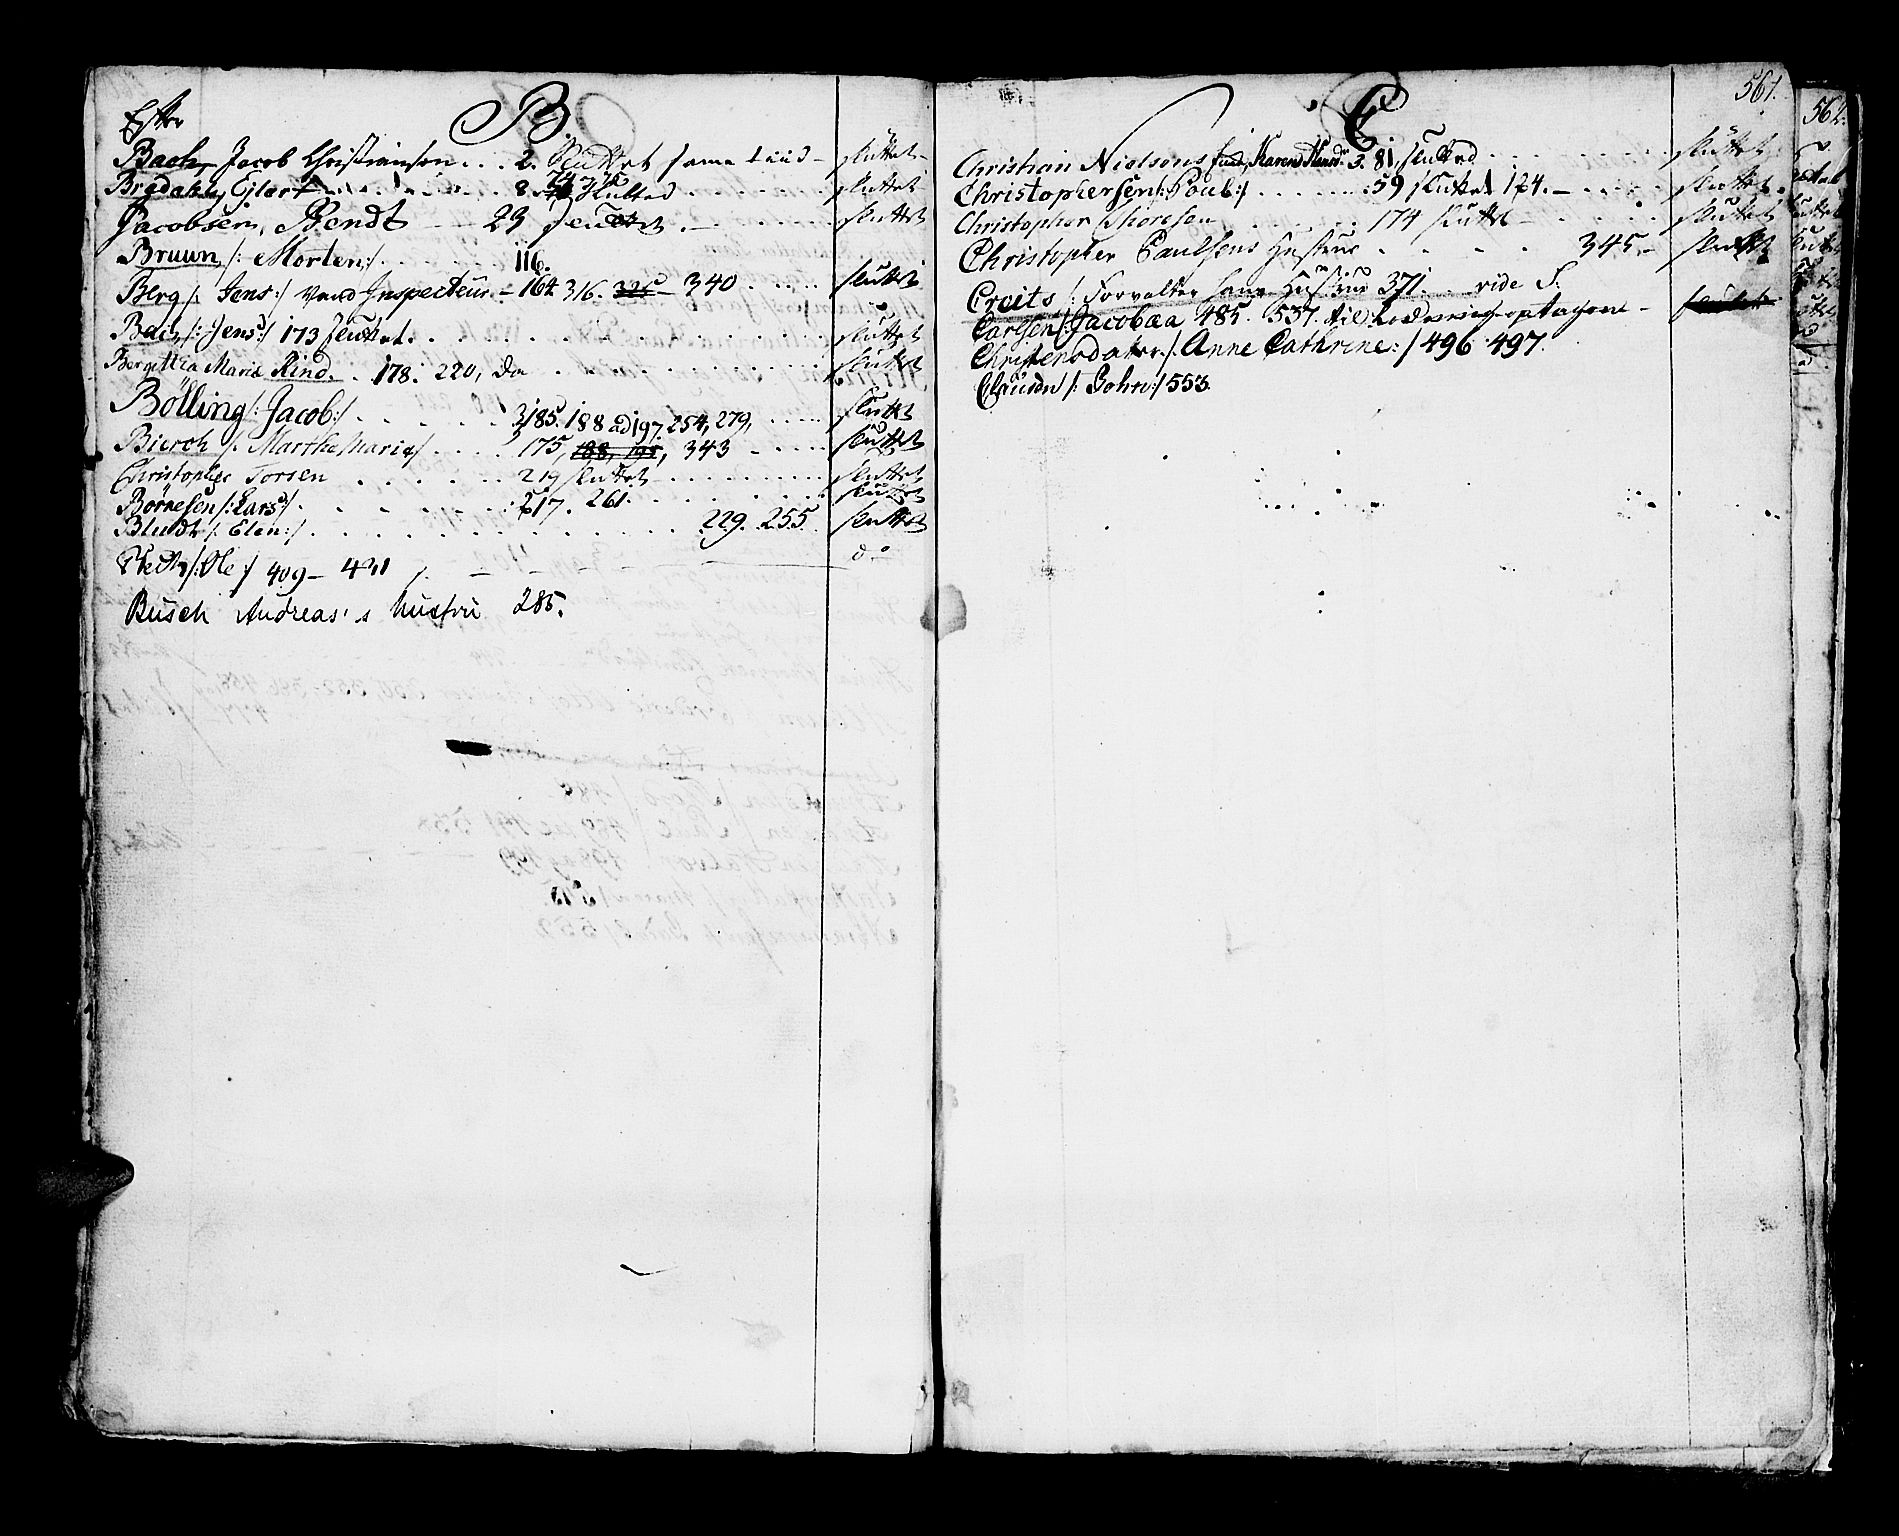 Efter B.
Bach, Jacob Christiansen . . . 2. sluttet samme tiid - sluttet -
Bredahl, Ejlert 8. 74 775 Slutted sluttet
Jacobsen, Bendt 23 sluttet sluttet
Bruun /: Morten :/ 116.
Berg /: Jens :/ Vand Inspecteur - 164 316. 325 - 340 sluttet
Bac, /: Jens :/ 173 sluttet. sluttet
Berg Mia Maria Rind. 178. 220, sluttet
Bölling /: Jacob :/ 185. 188 ad 197, 254, 279, sluttet
Bierch /: Marthe Maria :/ 175, 188, 195, 343 sluttet
Christopher Torsen 219 sluttet sluttet
Børnesen /: Lars :/ 217. 261. sluttet
Blindt /: Elen :/ 229. 255 sluttet
/: Ole :/ 409 - 421 do
Busch Andreas's hustru 285.
561.
C
Christian Nielsens Karen 3. 81, slutted sluttet
Christophersen /: Poul :/ 59 sluttet 174. - sluttet
Christopher Thoresen 174 sluttet - sluttet
Christopher Paulsens Hustrue 345 - sluttet
Croits /: Forvalter hans Hustrue 371. vide S.
Carlsen /: Jacobæa 485. 537. til optagene - sluttet
Christensdatter /: Anne Cathrine :/ 496. 497.
Clausen /: John :/ 553.
562.